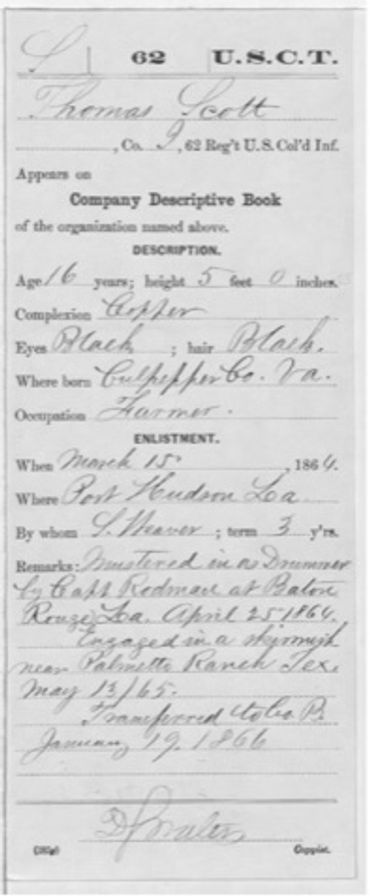 S | 62 | U.S.C.T.
Thomas Scott
, Co. I, 62 Reg't U.S. Col'd Inf.
Appears on
Company Descriptive Book
of the organization named above.
DESCRIPTION.
Age 16 years; height 5 feet 0 inches.
Complexion Copper
Eyes Black ; hair Black.
Where born Culpepper Co. Va.
Occupation Farmer.
ENLISTMENT.
When March 15, 1864.
Where Port Hudson La
By whom S. Weaver ; term 3 y'rs.
Remarks: Mustered in as Drummer
by Capt Rodman at Baton
Rouge, La. April 25 1864.
Engaged in a skirmish
near Palmetto Ranch Tex.
May 13/65.
Transferred to Co B.
January 19, 1866
Copyist.